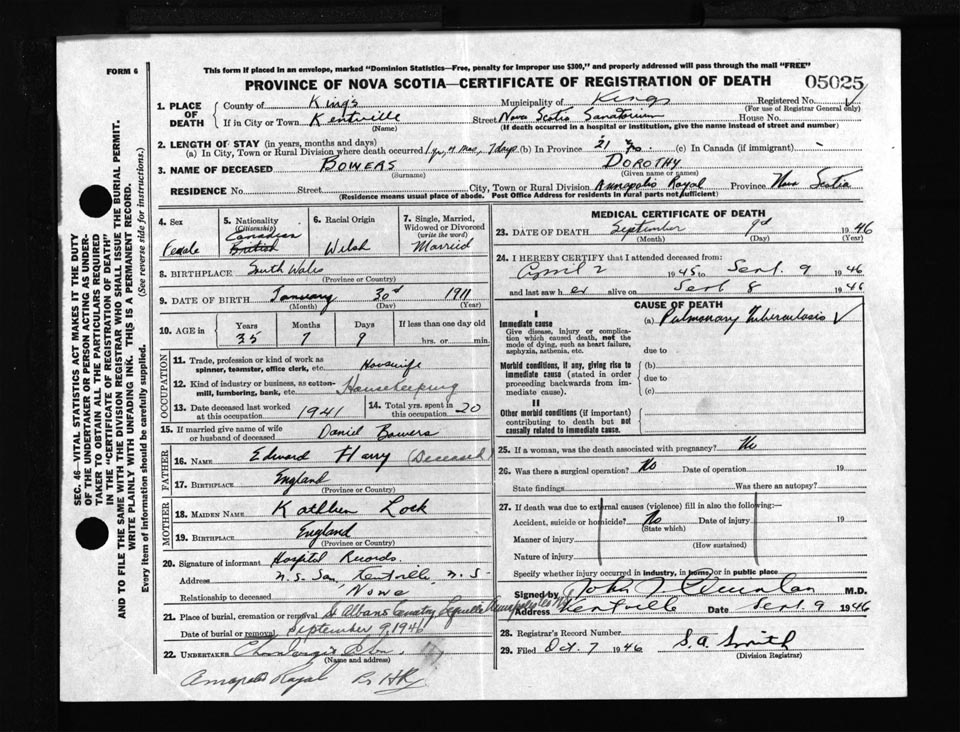 FORM 6
This form if placed in an envelope, marked "Dominion Statistics—Free, penalty for improper use $300," and properly addressed will pass through the mail "FREE"
PROVINCE OF NOVA SCOTIA—CERTIFICATE OF REGISTRATION OF DEATH 05025
1. PLACE OF DEATH County of Kings Municipality of Kings Registered No. ✓
(For use of Registrar General only)
If in City or Town Kentville Street Nova Scotia Sanatorium House No.
(Name) (If death occurred in a hospital or institution, give the name instead of street and number)
2. LENGTH OF STAY (in years, months and days)
(a) In City, Town or Rural Division where death occurred 1 yr, 4 mos, 7 days (b) In Province 21 yrs. (c) In Canada (if immigrant)
3. NAME OF DECEASED BOWERS DOROTHY
(Surname) (Given name or names)
RESIDENCE No. Street City, Town or Rural Division Annapolis Royal Province Nova Scotia
(Residence means usual place of abode. Post Office Address for residents in rural parts not sufficient)
4. Sex Female
5. Nationality (Citizenship) Canadian British
6. Racial Origin Welsh
7. Single, Married, Widowed or Divorced (write the word) Married
8. BIRTHPLACE South Wales
(Province or Country)
9. DATE OF BIRTH January 30th 1911
(Month) (Day) (Year)
10. AGE in Years Months Days If less than one day old
35 7 9 hrs. or min.
OCCUPATION
11. Trade, profession or kind of work as spinner, teamster, office clerk, etc. Housewife
12. Kind of industry or business, as cotton-mill, lumbering, bank, etc. Housekeeping
13. Date deceased last worked at this occupation 1941
14. Total yrs. spent in this occupation 20
15. If married give name of wife or husband of deceased Daniel Bowers
FATHER
16. NAME Edward Harry (Deceased)
17. BIRTHPLACE England
(Province or Country)
MOTHER
18. MAIDEN NAME Kathleen Lock
19. BIRTHPLACE England
(Province or Country)
20. Signature of informant Hospital Records.
Address N.S. San, Kentville, N.S.
Relationship to deceased None
21. Place of burial, cremation or removal St Albans Cemetery Lequille Annapolis Co NS
Date of burial or removal September 9, 1946
22. UNDERTAKER
(Name and address)
Annapolis Royal
MEDICAL CERTIFICATE OF DEATH
23. DATE OF DEATH September 9th 1946
(Month) (Day) (Year)
24. I HEREBY CERTIFY that I attended deceased from:
April 2 1945 to Sept. 9 1946
and last saw her alive on Sept 8 1946
CAUSE OF DEATH
I
Immediate cause (a) Pulmonary Tuberculosis ✓
Give disease, injury or complication which caused death, not the mode of dying, such as heart failure, asphyxia, asthenia, etc.
due to
Morbid conditions, if any, giving rise to immediate cause (stated in order proceeding backwards from immediate cause).
(b)
due to
(c)
II
Other morbid conditions (if important) contributing to death but not causally related to immediate cause.
25. If a woman, was the death associated with pregnancy? No
26. Was there a surgical operation? No Date of operation 19
State findings Was there an autopsy?
27. If death was due to external causes (violence) fill in also the following:—
Accident, suicide or homicide? No Date of injury 19
(State which)
Manner of injury
(How sustained)
Nature of injury
Specify whether injury occurred in industry, in home or in public place
Signed by John M.D.
Address Kentville Date Sept. 9 1946
28. Registrar's Record Number
29. Filed Oct. 7 1946 S.A. Smith
(Division Registrar)
SEC. 46—VITAL STATISTICS ACT MAKES IT THE DUTY
OF THE UNDERTAKER OR PERSON ACTING AS UNDER-
TAKER TO OBTAIN ALL THE PARTICULARS REQUIRED
IN THE "CERTIFICATE OF REGISTRATION OF DEATH"
AND TO FILE THE SAME WITH THE DIVISION REGISTRAR WHO SHALL ISSUE THE BURIAL PERMIT.
WRITE PLAINLY WITH UNFADING INK. THIS IS A PERMANENT RECORD.
Every item of information should be carefully supplied. (See reverse side for instructions.)